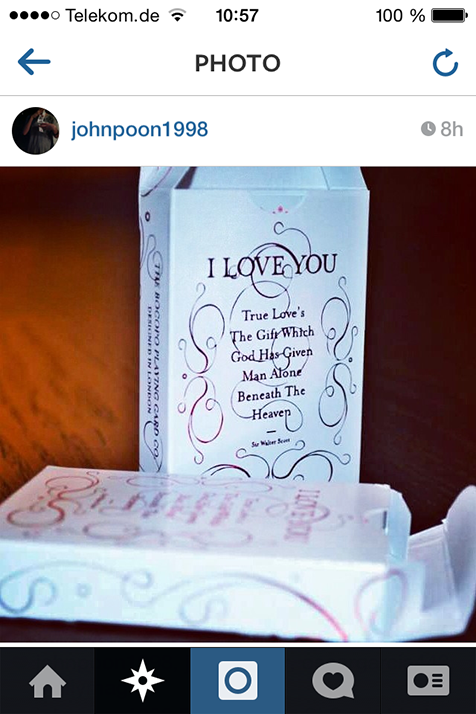 Telekom.de 10:57 100 %
PHOTO
johnpoon1998 8h
I LOVE YOU
True Love's
The Gift Which
God Has Given
Man Alone
Beneath The
Heaven
Sir Walter Scott
THE BOCOPO PLAYING CARD CO.
DESIGNED IN LONDON
I LOVE YOU